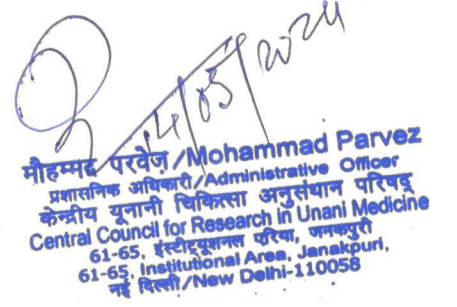 14/05/2024
मौहम्मद परवेज़/Mohammad Parvez
प्रशासनिक अधिकारी/Administrative Officer
केन्द्रीय यूनानी चिकित्सा अनुसंधान परिषद्
Central Council for Research in Unani Medicine
61-65, इंस्टीट्यूशनल एरिया, जनकपुरी
61-65, Institutional Area, Janakpuri,
नई दिल्ली/New Delhi-110058